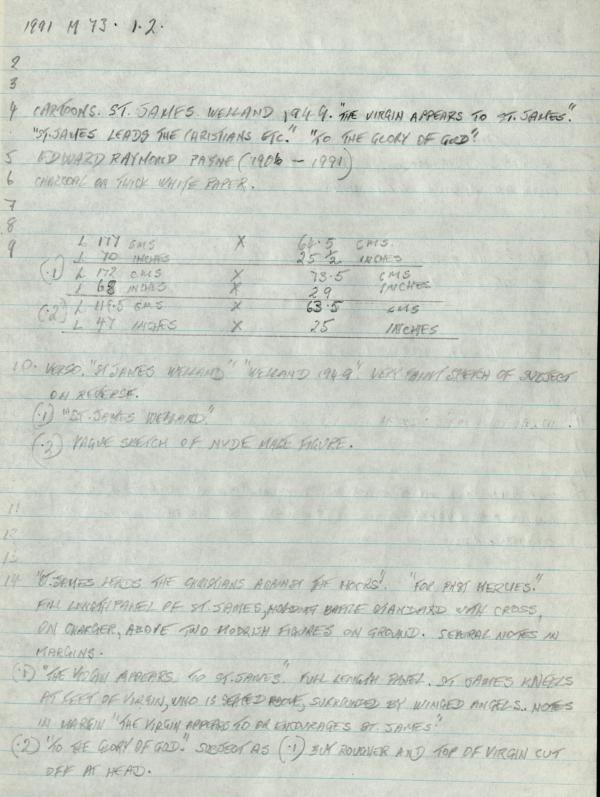 1991 M 73. 1.2.
2
3
4 CARTOONS. ST. JAMES. WELLAND 1949. "THE VIRGIN APPEARS TO ST. JAMES".
"ST. JAMES LEADS THE CHRISTIANS ETC." "TO THE GLORY OF GOD"
5 EDWARD RAYMOND PAYNE (1906 - 1991)
6 CHARCOAL ON THICK WHITE PAPER.
7
8
9 L 177 CMS X 64.5 CMS.
L 70 INCHES 25 ½ INCHES
(.1) L 172 CMS X 73.5 CMS
L 68 INCHES X 29 INCHES
(.2) L 119.5 CMS X 63.5 CMS
L 47 INCHES X 25 INCHES
10. VERSO. "ST JAMES WELLAND" "WELLAND 1949". VERY FAINT SKETCH OF SUBJECT
ON REVERSE.
(.1) "ST. JAMES WELLAND."
(.2) VAGUE SKETCH OF NUDE MALE FIGURE.
11
12
13
14 "ST. JAMES LEADS THE CHRISTIANS AGAINST THE MOORS". "FOR PAST MERCIES."
FULL LENGTH PANEL OF ST. JAMES, HOLDING BATTLE STANDARD WITH CROSS,
ON CHARGER, ABOVE TWO MOORISH FIGURES ON GROUND. SEVERAL NOTES IN
MARGINS.
(.1) "THE VIRGIN APPEARS TO ST. JAMES". FULL LENGTH PANEL. ST JAMES KNEELS
AT FEET OF VIRGIN, WHO IS SEATED ABOVE, SURROUNDED BY WINGED ANGELS. NOTES
IN MARGIN "THE VIRGIN APPEARS TO OR ENCOURAGES ST. JAMES"
(.2) "TO THE GLORY OF GOD." SUBJECT AS (.1) BUT ROUGHER AND TOP OF VIRGIN CUT
OFF AT HEAD.